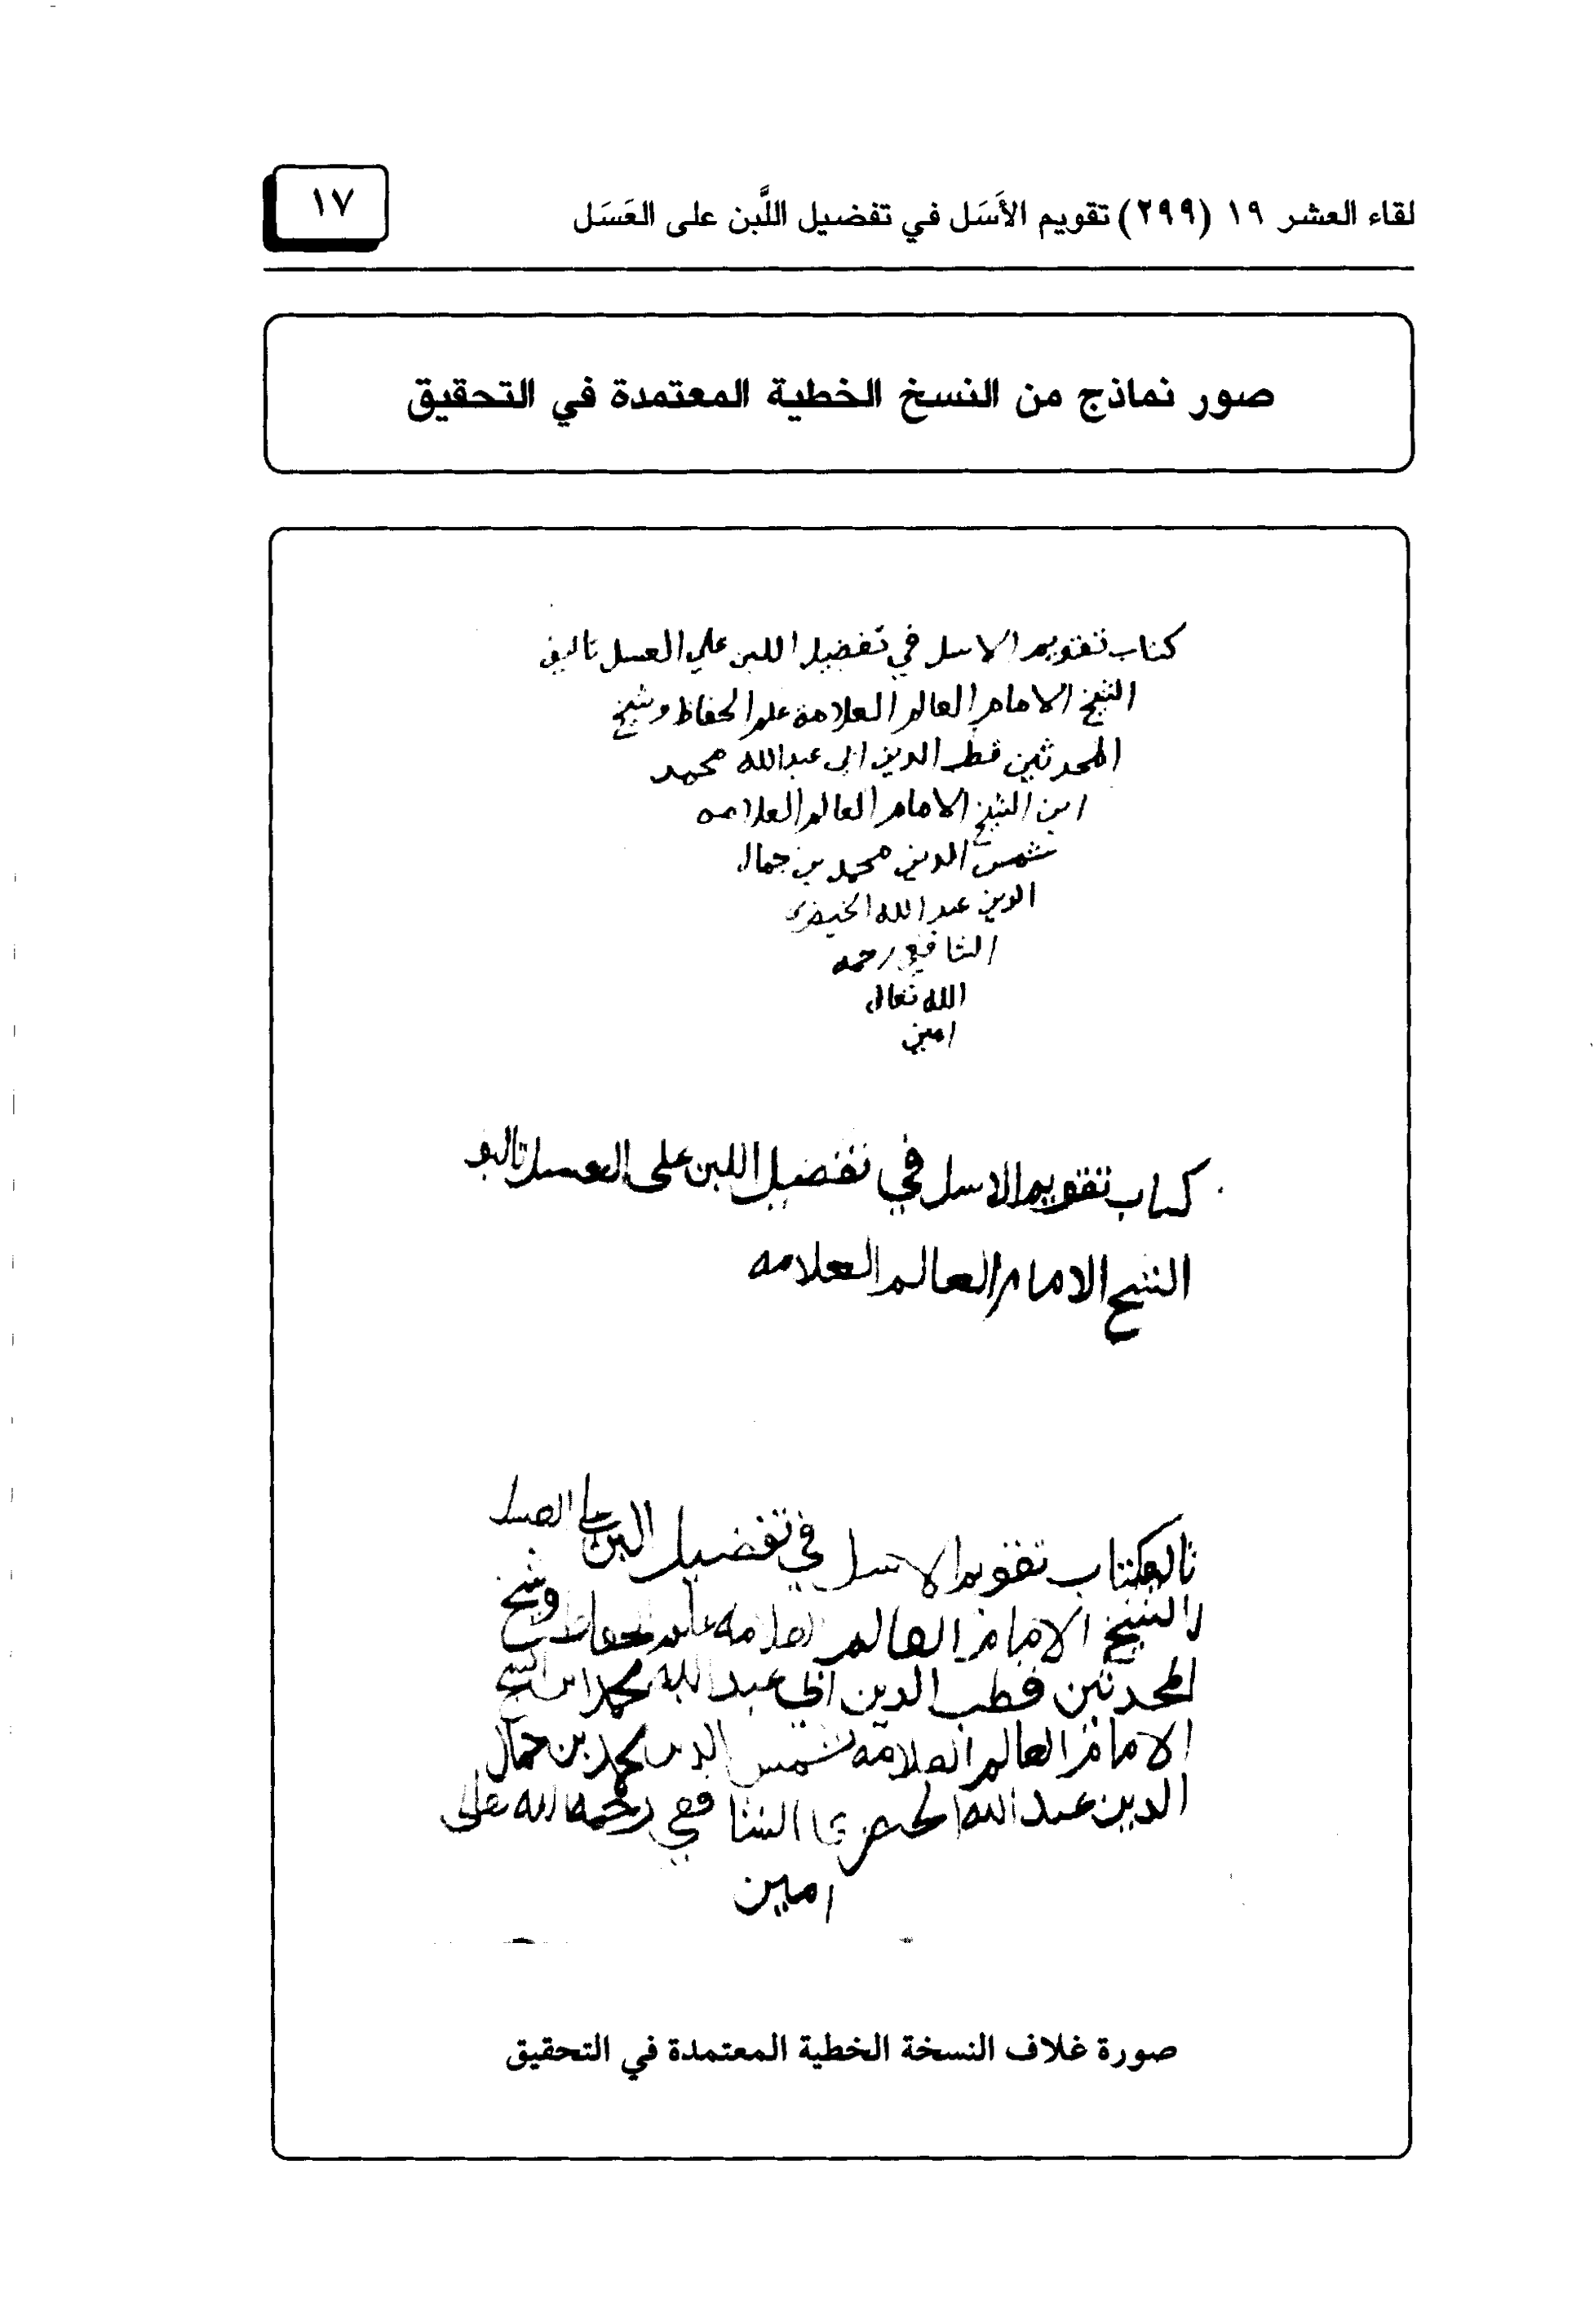 لقاء العشر ١٩ (٢٩٩) تقويم الأَسَل في تفضيل اللَّبن على العَسَل
١٧
صور نماذج من النسخ الخطية المعتمدة في التحقيق
كتاب تقويم الاسل في تفضيل اللبن علي العسل تاليف
الشيخ الامام العالم العلامة علم الحفاظ وشيخ
المحدثين قطب الدين ابي عبدالله محمد
ابن الشيخ الامام العالم العلامه
شمس الدين محمد بن جمال
الدين عبد الله الخيضري
الشافعي رحمه
الله تعالى
امين
كتاب تقويم الاسل في تفضيل اللبن على العسل تاليف
الشيخ الامام العالم العلامه
كتاب تقويم الاسل في تفضيل اللبن على العسل
الشيخ الامام العالم العلامه علم الحفاظ وشيخ
المحدثين قطب الدين ابي عبد الله محمد ابن الشيخ
الامام العالم العلامة شمس الدين محمد بن جمال
الدين عبد الله الخيضري الشافعي رحمه الله تعالى
امين
صورة غلاف النسخة الخطية المعتمدة في التحقيق